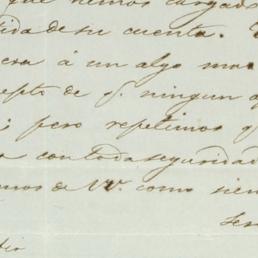 que hemos cargado
tida de su cuenta.
era á un algo mas
epto de q. ningun
pero repetimos q
con toda seguridad
mos de VV. como siem